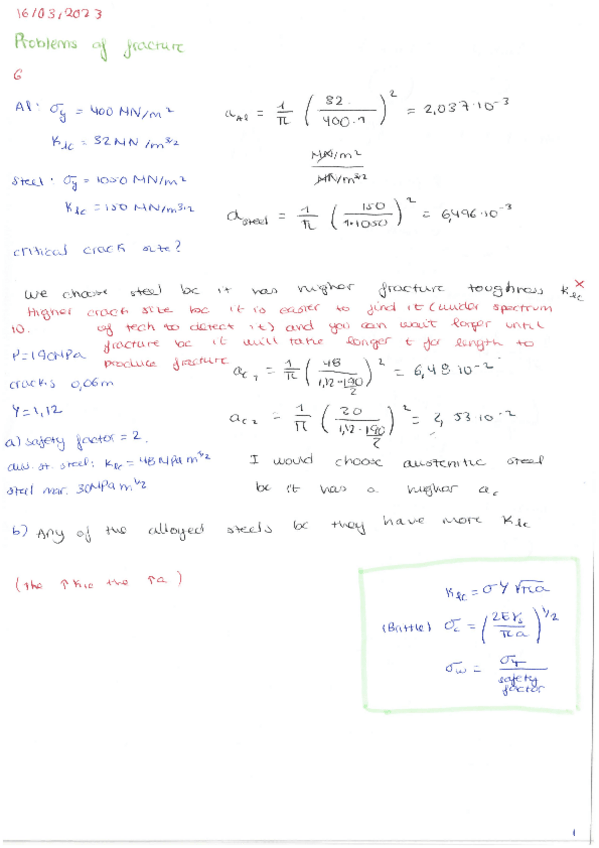 16/03/2023
Problems of fracture
6
Al: σy = 400 MN/m²
KIc = 32 MN/m^3/2
a_Al = 1/π (32/400·1)² = 2,037·10^-3
MN/m²
MN/m^3/2
Steel: σy = 1050 MN/m²
KIc = 150 MN/m^3/2
a_steel = 1/π (150/1·1050)² = 6,496·10^-3
critical crack size?
We choose steel bc it has higher fracture toughness KIc
Higher crack size bc it is easier to find it (under spectrum
of tech to detect it) and you can wait larger until
fracture bc it will take longer t for length to
produce fracture
10.
σ=190MPa
cracks 0,06m
Y=1,12
a) safety factor = 2.
aus. st. steel: KIc = 48 MPa m^1/2
steel mar. 30MPa m^1/2
a_c1 = 1/π (48/1,12·190/2)² = 6,48·10^-2
a_c2 = 1/π (30/1,12·190/2)² = 2,53·10^-2
I would choose austenitic steel
bc it has a higher ac
b) Any of the alloyed steels bc they have more KIc
(the ↑KIc the ↑a)
KIc = σY√πa
(Brittle) σc = (2Eγs/πa)^1/2
σw = σy/safety factor
1